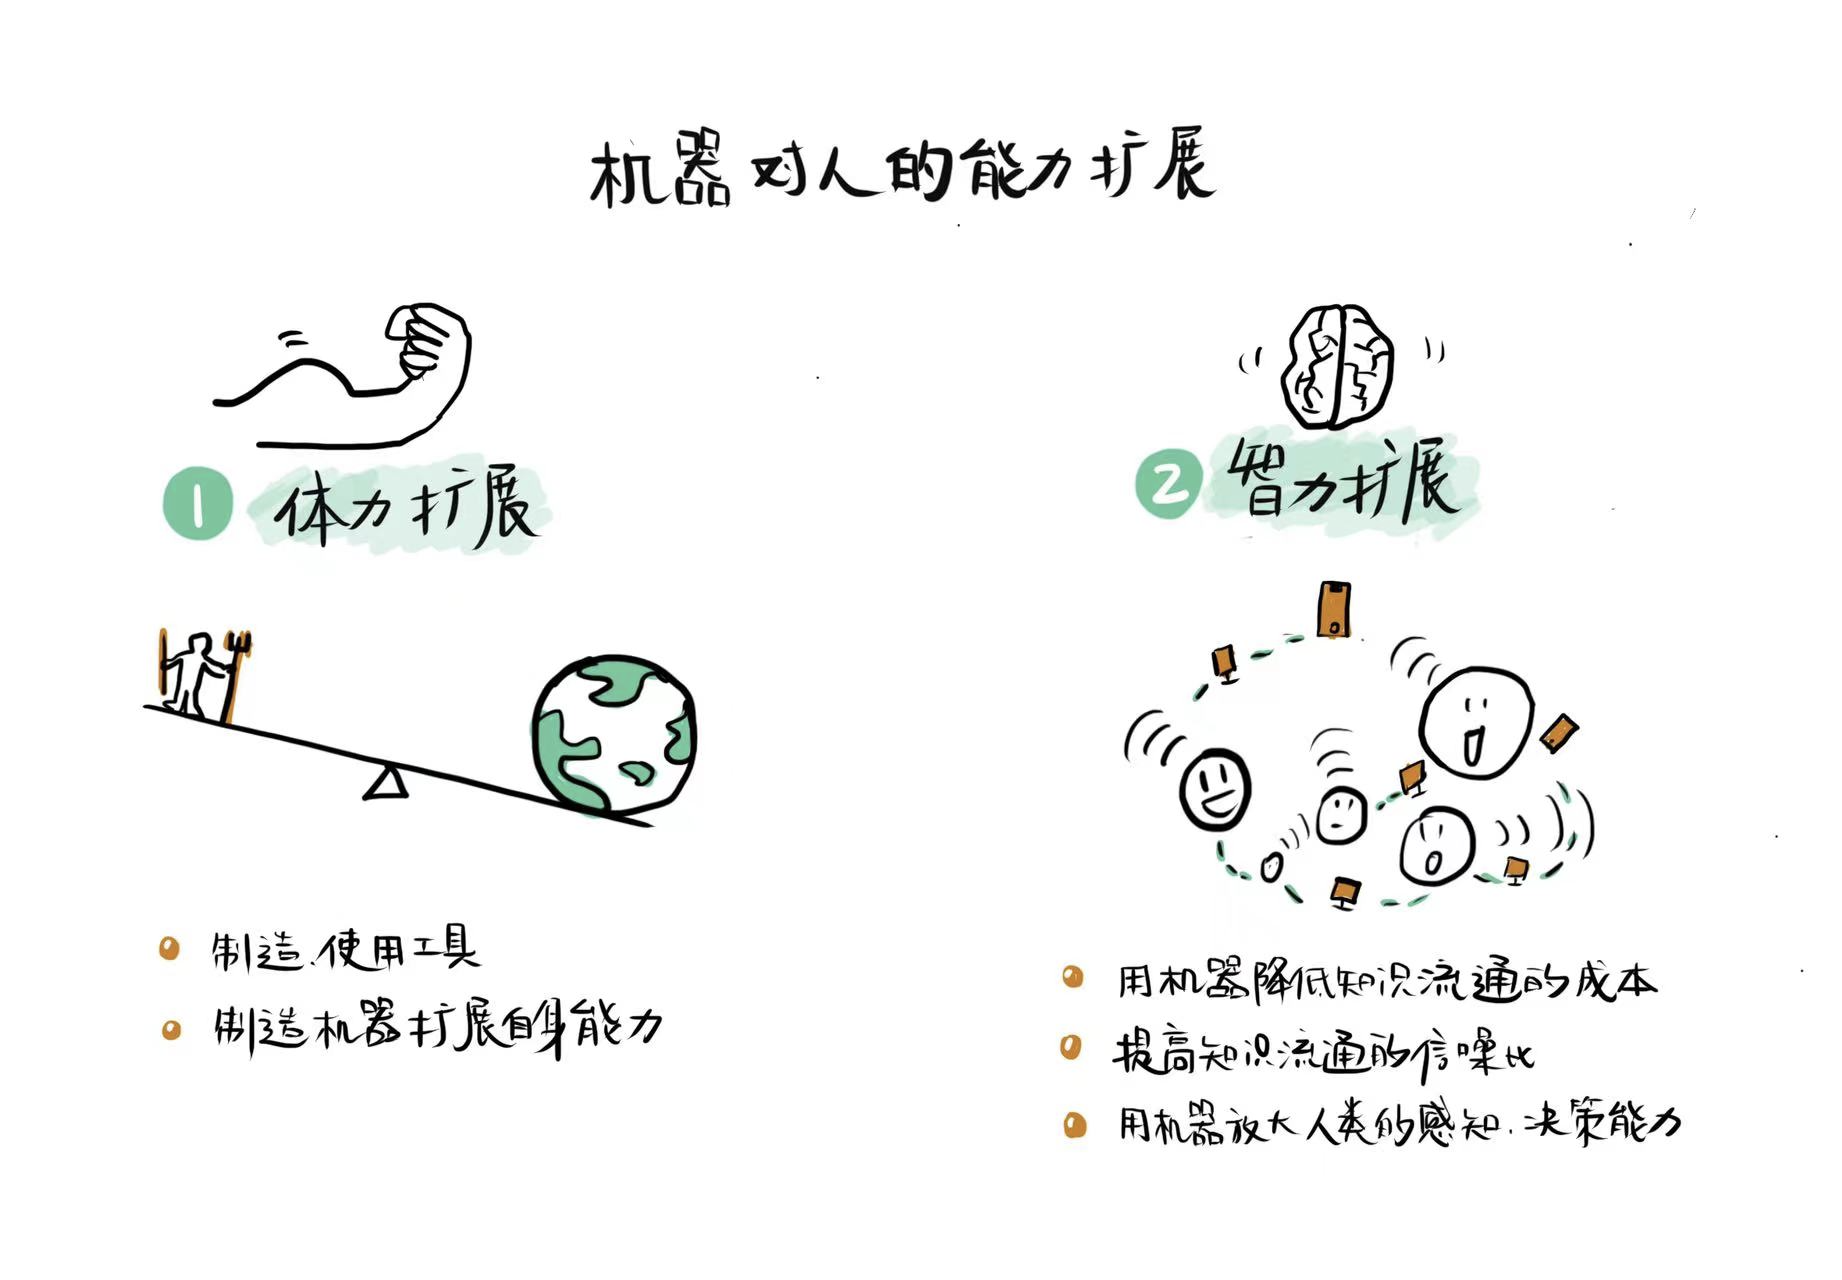 机器对人的能力扩展
1 体力扩展
制造、使用工具
制造机器扩展自身能力
2 智力扩展
用机器降低知识流通的成本
提高知识流通的信噪比
用机器放大人类的感知、决策能力